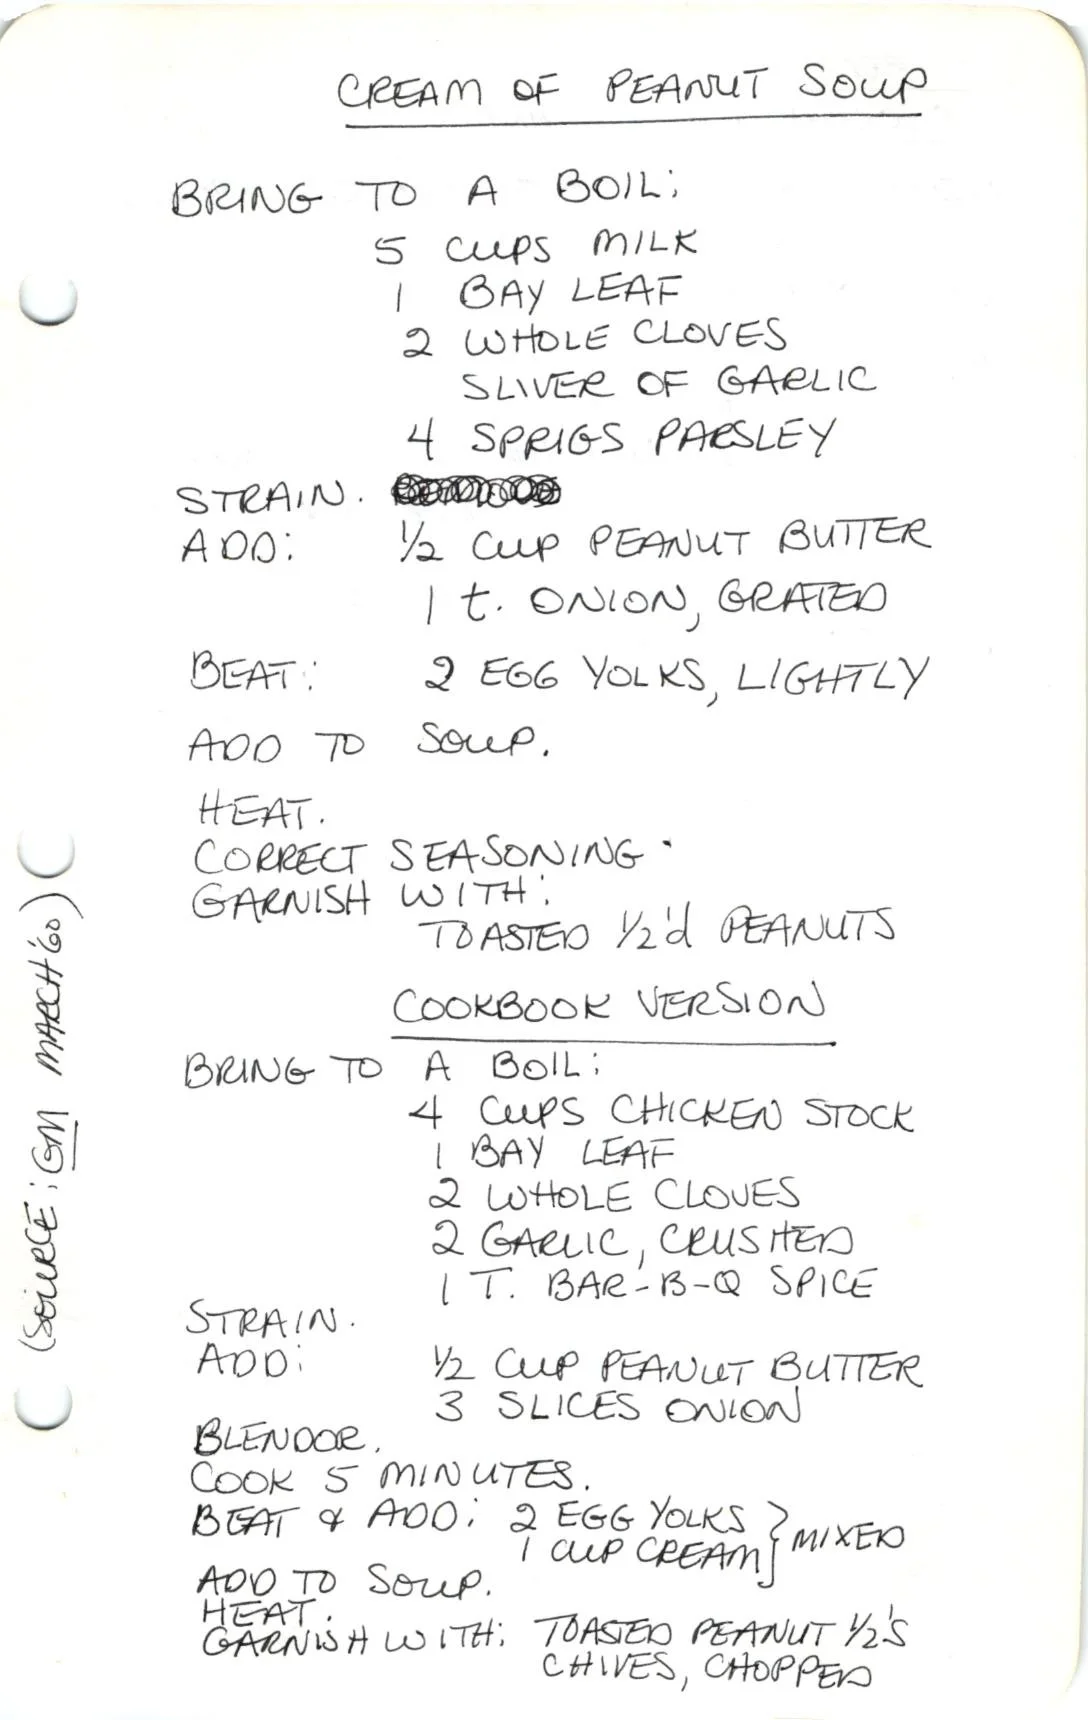 CREAM OF PEANUT SOUP
BRING TO A BOIL:
5 CUPS MILK
1 BAY LEAF
2 WHOLE CLOVES
SLIVER OF GARLIC
4 SPRIGS PARSLEY
STRAIN.
ADD: 1/2 CUP PEANUT BUTTER
1 t. ONION, GRATED
BEAT: 2 EGG YOLKS, LIGHTLY
ADD TO SOUP.
HEAT.
CORRECT SEASONING.
GARNISH WITH:
TOASTED 1/2'd PEANUTS
COOKBOOK VERSION
BRING TO A BOIL:
4 CUPS CHICKEN STOCK
1 BAY LEAF
2 WHOLE CLOVES
2 GARLIC, CRUSHED
1 T. BAR-B-Q SPICE
STRAIN.
ADD: 1/2 CUP PEANUT BUTTER
3 SLICES ONION
BLENDOR.
COOK 5 MINUTES.
BEAT & ADD: 2 EGG YOLKS
1 CUP CREAM } MIXED
ADD TO SOUP.
HEAT.
GARNISH WITH: TOASTED PEANUT 1/2's
CHIVES, CHOPPED
(SOURCE: GM MARCH '60)